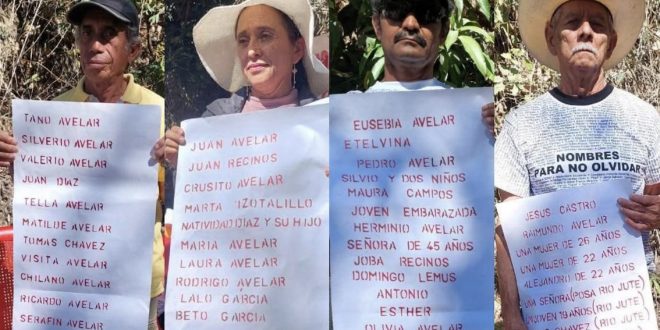 TANO AVELAR
SILVERIO AVELAR
VALERIO AVELAR
JUAN DIAZ
TELLA AVELAR
MATILDE AVELAR
TOMAS CHAVEZ
VISITA AVELAR
CHILANO AVELAR
RICARDO AVELAR
SERAFIN AVELAR
JUAN AVELAR
JUAN RECINOS
CRUSITO AVELAR
MARTA IZOTALILLO
NATIVIDAD DÍAZ Y SU HIJO
MARIA AVELAR
LAURA AVELAR
RODRIGO AVELAR
LALO GARCIA
BETO GARCIA
EUSEBIA AVELAR
ETELVINA
PEDRO AVELAR
SILVIO Y DOS NIÑOS
MAURA CAMPOS
JOVEN EMBARAZADA
HERMINIO AVELAR
SEÑORA DE 45 AÑOS
JOBA RECINOS
DOMINGO LEMUS
ANTONIO
ESTHER
OLIVIA AVELAR
NOMBRES
PARA NO OLVIDAR
JESUS CASTRO
RAIMUNDO AVELAR
UNA MUJER DE 26 AÑOS
UNA MUJER DE 22 AÑOS
ALEJANDRO DE 22 AÑOS
UNA SEÑORA (POSA RIO JUTE)
JOVEN 19 AÑOS (RIO JUTE)
CHAVEZ (RIO JUTE)